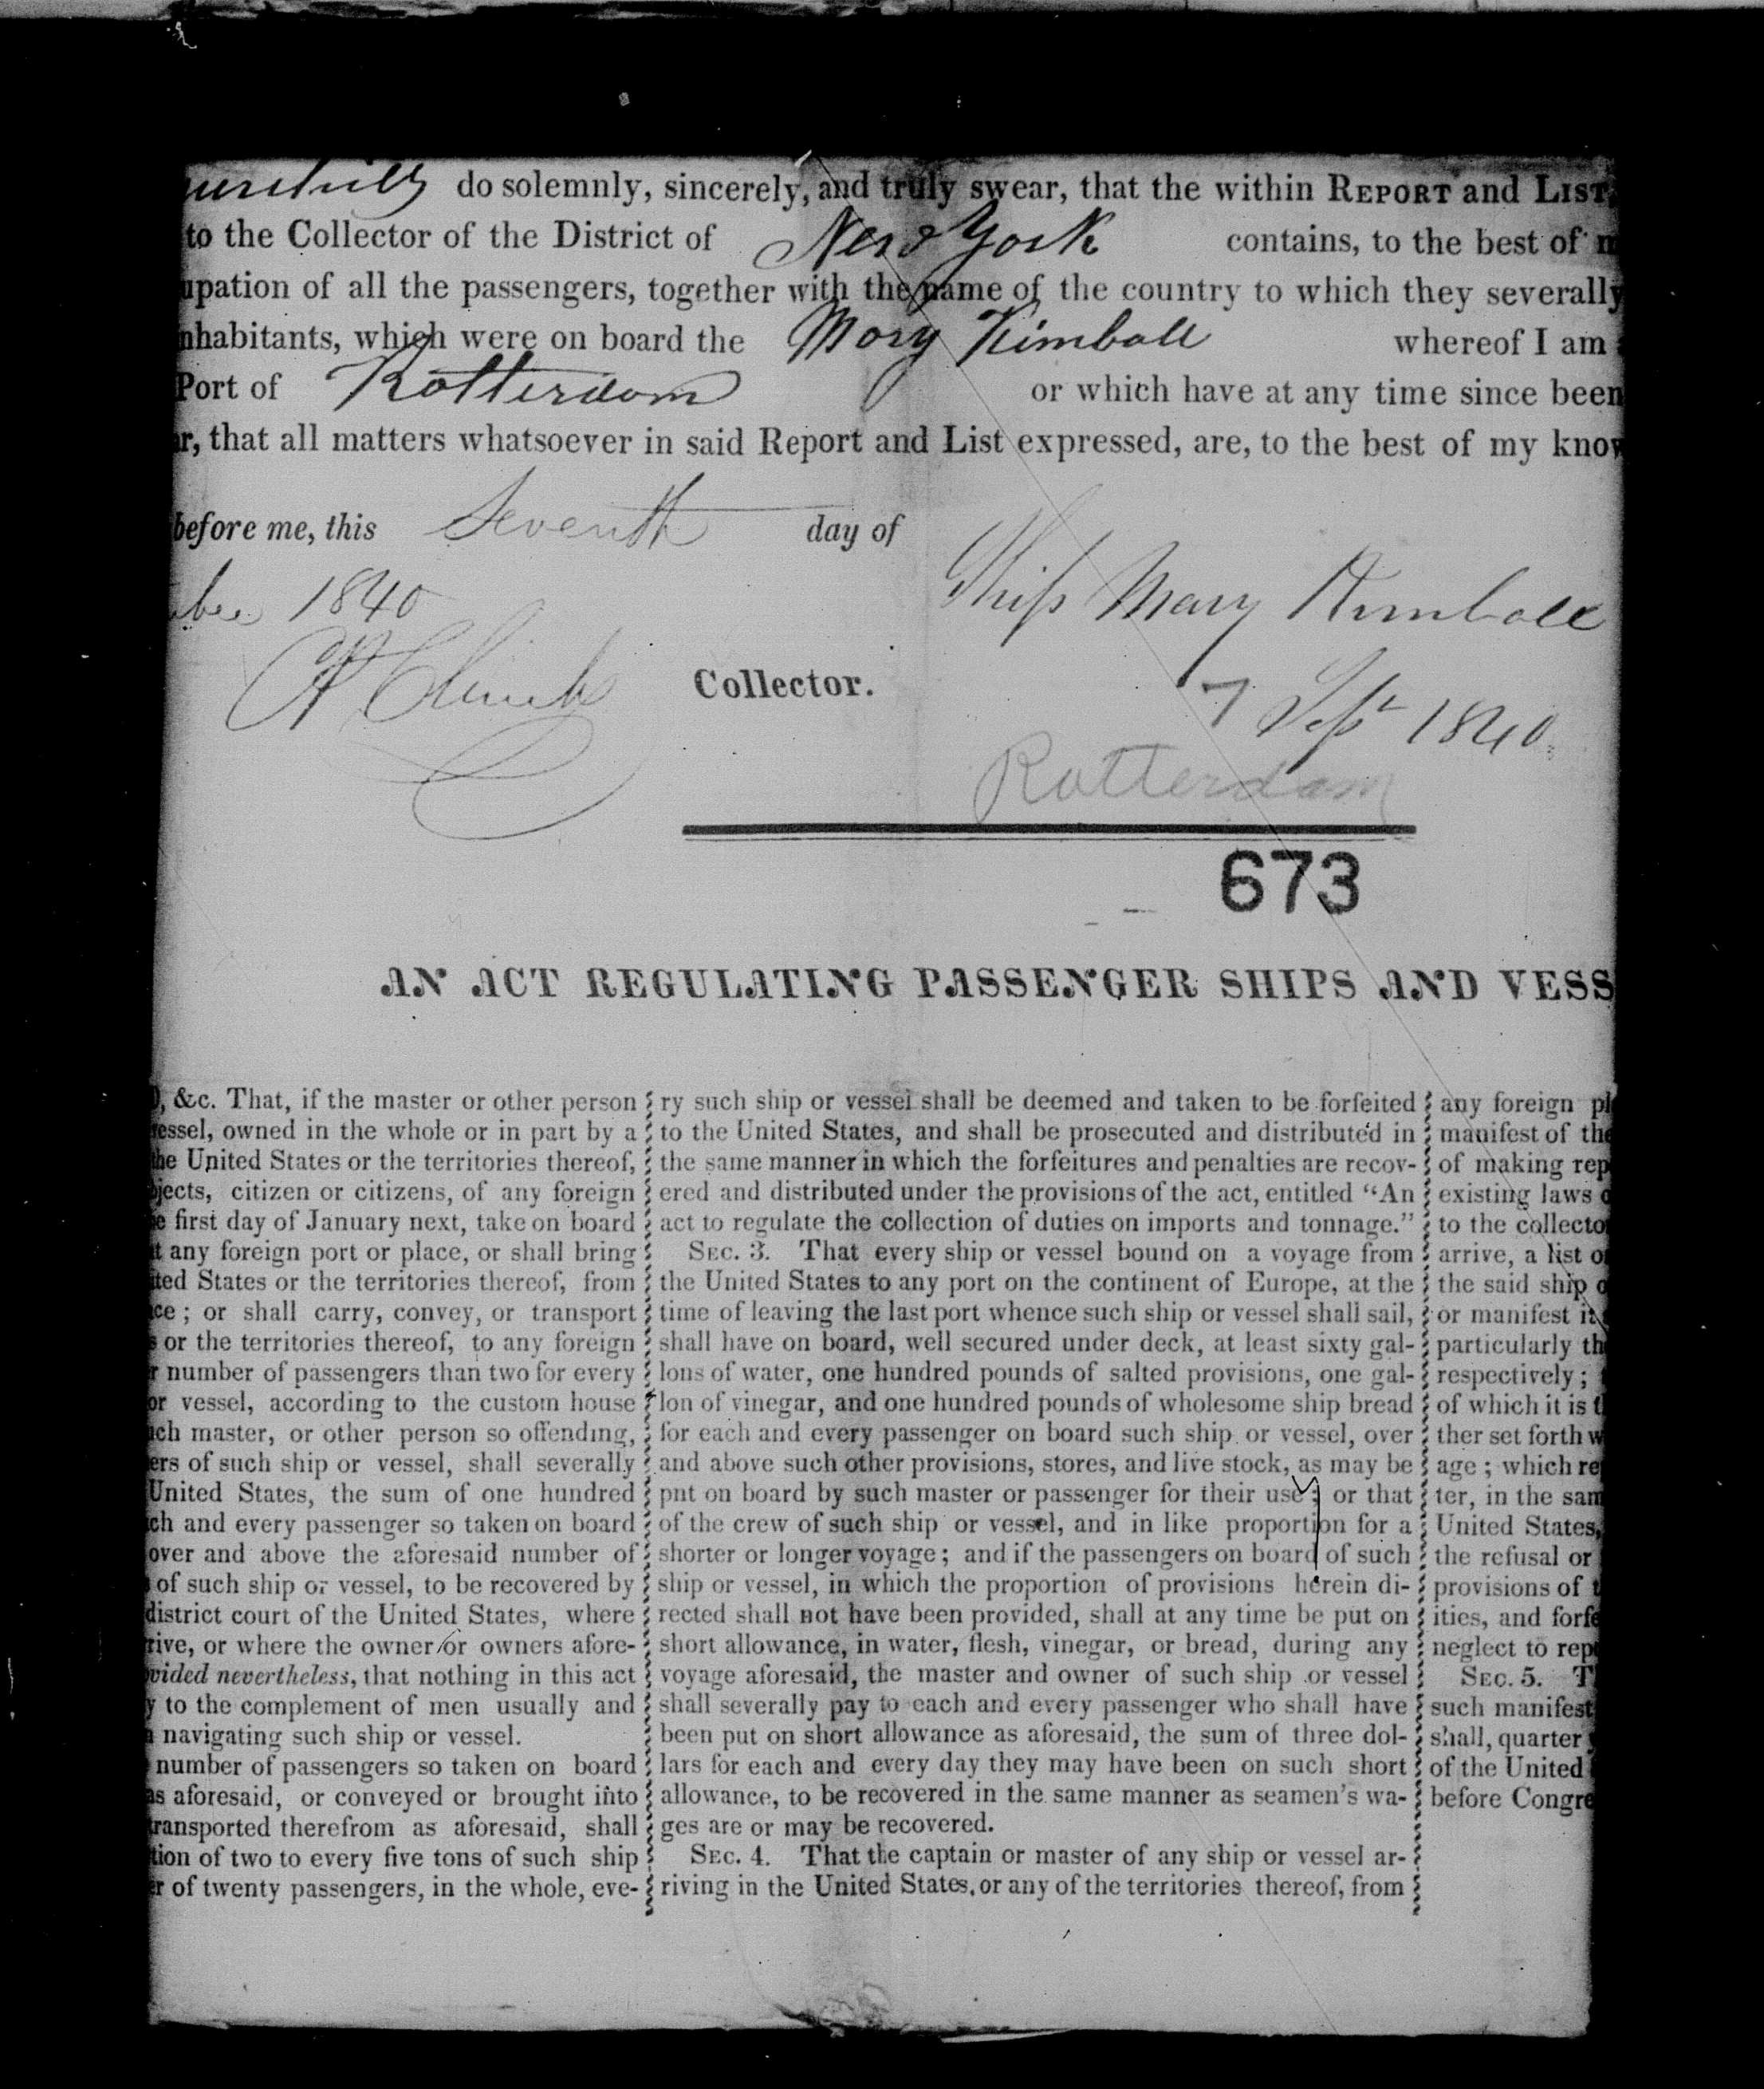 do solemnly, sincerely, and truly swear, that the within REPORT and LIST
to the Collector of the District of New York contains, to the best of m
upation of all the passengers, together with the name of the country to which they severally
nhabitants, which were on board the Mary Kimball whereof I am
Port of Rotterdam or which have at any time since been
r, that all matters whatsoever in said Report and List expressed, are, to the best of my know
before me, this Seventh day of
ber 1840
Ship Mary Kimball
Collector.
7 Sept 1840
Rotterdam
673
AN ACT REGULATING PASSENGER SHIPS AND VESS
, &c. That, if the master or other person
essel, owned in the whole or in part by a
the United States or the territories thereof,
jects, citizen or citizens, of any foreign
e first day of January next, take on board
t any foreign port or place, or shall bring
ited States or the territories thereof, from
ce; or shall carry, convey, or transport
s or the territories thereof, to any foreign
r number of passengers than two for every
or vessel, according to the custom house
ch master, or other person so offending,
ers of such ship or vessel, shall severally
United States, the sum of one hundred
ch and every passenger so taken on board
over and above the aforesaid number of
of such ship or vessel, to be recovered by
district court of the United States, where
rive, or where the owner or owners afore-
vided nevertheless, that nothing in this act
y to the complement of men usually and
navigating such ship or vessel.
number of passengers so taken on board
as aforesaid, or conveyed or brought into
transported therefrom as aforesaid, shall
tion of two to every five tons of such ship
er of twenty passengers, in the whole, eve-
ry such ship or vessel shall be deemed and taken to be forfeited
to the United States, and shall be prosecuted and distributed in
the same manner in which the forfeitures and penalties are recov-
ered and distributed under the provisions of the act, entitled “An
act to regulate the collection of duties on imports and tonnage.”
SEC. 3. That every ship or vessel bound on a voyage from
the United States to any port on the continent of Europe, at the
time of leaving the last port whence such ship or vessel shall sail,
shall have on board, well secured under deck, at least sixty gal-
lons of water, one hundred pounds of salted provisions, one gal-
lon of vinegar, and one hundred pounds of wholesome ship bread
for each and every passenger on board such ship or vessel, over
and above such other provisions, stores, and live stock, as may be
put on board by such master or passenger for their use; or that
of the crew of such ship or vessel, and in like proportion for a
shorter or longer voyage; and if the passengers on board of such
ship or vessel, in which the proportion of provisions herein di-
rected shall not have been provided, shall at any time be put on
short allowance, in water, flesh, vinegar, or bread, during any
voyage aforesaid, the master and owner of such ship or vessel
shall severally pay to each and every passenger who shall have
been put on short allowance as aforesaid, the sum of three dol-
lars for each and every day they may have been on such short
allowance, to be recovered in the same manner as seamen's wa-
ges are or may be recovered.
SEC. 4. That the captain or master of any ship or vessel ar-
riving in the United States, or any of the territories thereof, from
any foreign pl
manifest of the
of making rep
existing laws o
to the collecto
arrive, a list o
the said ship o
or manifest it
particularly th
respectively;
of which it is t
ther set forth w
age; which re
ter, in the sam
United States,
the refusal or
provisions of t
ities, and forfe
neglect to rep
SEC. 5. T
such manifest
shall, quarter
of the United
before Congre